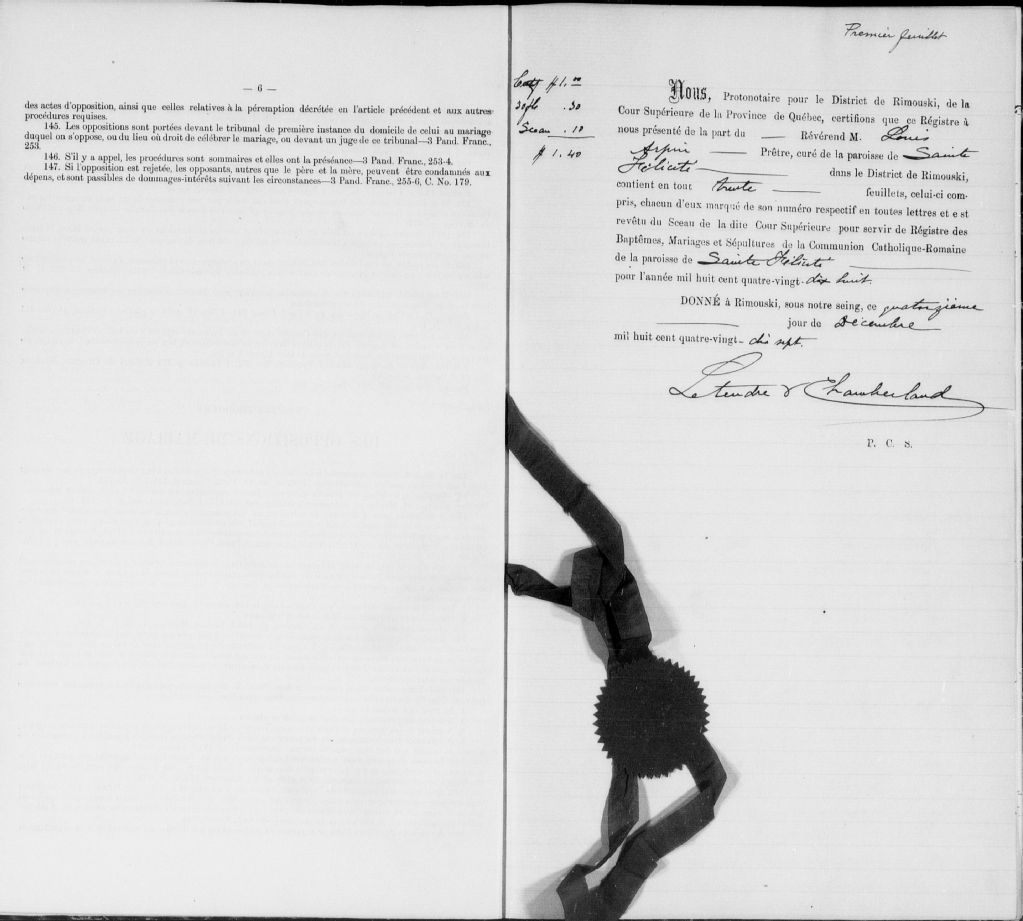 — 6 —
des actes d'opposition, ainsi que celles relatives à la péremption décrétée en l'article précédent et aux autres
procédures requises.
145. Les oppositions sont portées devant le tribunal de première instance du domicile de celui au mariage
duquel on s'oppose, ou du lieu où droit de célébrer le mariage, ou devant un juge de ce tribunal—3 Pand. Franc.,
253.
146. S'il y a appel, les procédures sont sommaires et elles ont la préséance—3 Pand. Franc., 253-4.
147. Si l'opposition est rejetée, les opposants, autres que le père et la mère, peuvent être condamnés aux
dépens, et sont passibles de dommages-intérêts suivant les circonstances—3 Pand. Franc., 255-6, C. No. 179.
Premier feuillet
$1.00
30 fls .30
Sceau .10
$1.40
Nous, Protonotaire pour le District de Rimouski, de la
Cour Supérieure de la Province de Québec, certifions que ce Régistre à
nous présenté de la part du Révérend M. Louis
Arpin Prêtre, curé de la paroisse de Sainte
Félicité dans le District de Rimouski,
contient en tout trente feuillets, celui-ci com-
pris, chacun d'eux marqué de son numéro respectif en toutes lettres et e st
revêtu du Sceau de la dite Cour Supérieure pour servir de Régistre des
Baptêmes, Mariages et Sépultures de la Communion Catholique-Romaine
de la paroisse de Sainte Félicité
pour l'année mil huit cent quatre-vingt-dix huit.
DONNÉ à Rimouski, sous notre seing, ce quatorzième
jour de Décembre
mil huit cent quatre-vingt-dix sept.
Letendre & Chamberland
P. C. S.